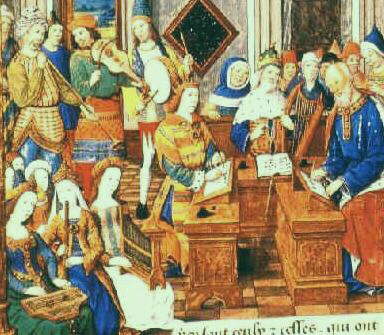 ceulx ⁊ celles. qui ont